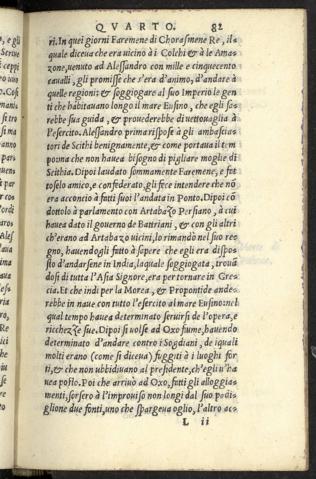 QVARTO. 82
ri. In quei giorni Faremene di Chorasmene Re, il-
quale diceua che era uicino à i Colchi & à le Ama-
zone, uenuto ad Alessandro con mille e cinquecento
caualli, gli promisse che s'era d'animo, d'andare à
quelle regioni: & soggiogare al suo Imperio le gen
ti che habitauano longo il mare Eusino, che egli sa-
rebbe sua guida, & prouederebbe di uettouaglia à
l'esercito. Alessandro prima rispose à gli ambascia-
tori de Scithi benignamente, & come portaua il tem
po: ma che non hauea bisogno di pigliare moglie di
Scithia. Dipoi laudato sommamente Faremene, e fat
toselo amico, e confederato, gli fece intendere che nõ
era acconcio à fatti suoi l'andata in Ponto. Dipoi cõ
dottolo à parlamento con Artabazo Persiano, à cui
hauea dato il gouerno de Battriani, & con gli altri
ch'erano ad Artabazo uicini, lo rimandò nel suo re
gno, hauendogli fatto à sapere che egli era dispo-
sto d'andarsene in India, laquale soggiogata, trouã
dosi di tutta l'Asia Signore, era per tornare in Gre-
cia. Et che indi per la Morea, & Propontide ande-
rebbe in naue con tutto l'esercito al mare Eusino: nel
qual tempo hauea determinato seruirsi de l'opera, e
ricchezze sue. Dipoi si uolse ad Oxo fiume, hauendo
determinato d'andare contro i Sogdiani, de iquali
molti erano (come si diceua) fuggiti à i luoghi for
ti, & che non ubbidiuano al presidente, ch'egli u'ha
uea posto. Poi che arriuò ad Oxo, fatti gli alloggia-
menti, sorsero à l'improuiso non longi dal suo padi-
glione due fonti, uno che spargeua oglio, l'altro ac-
L ii